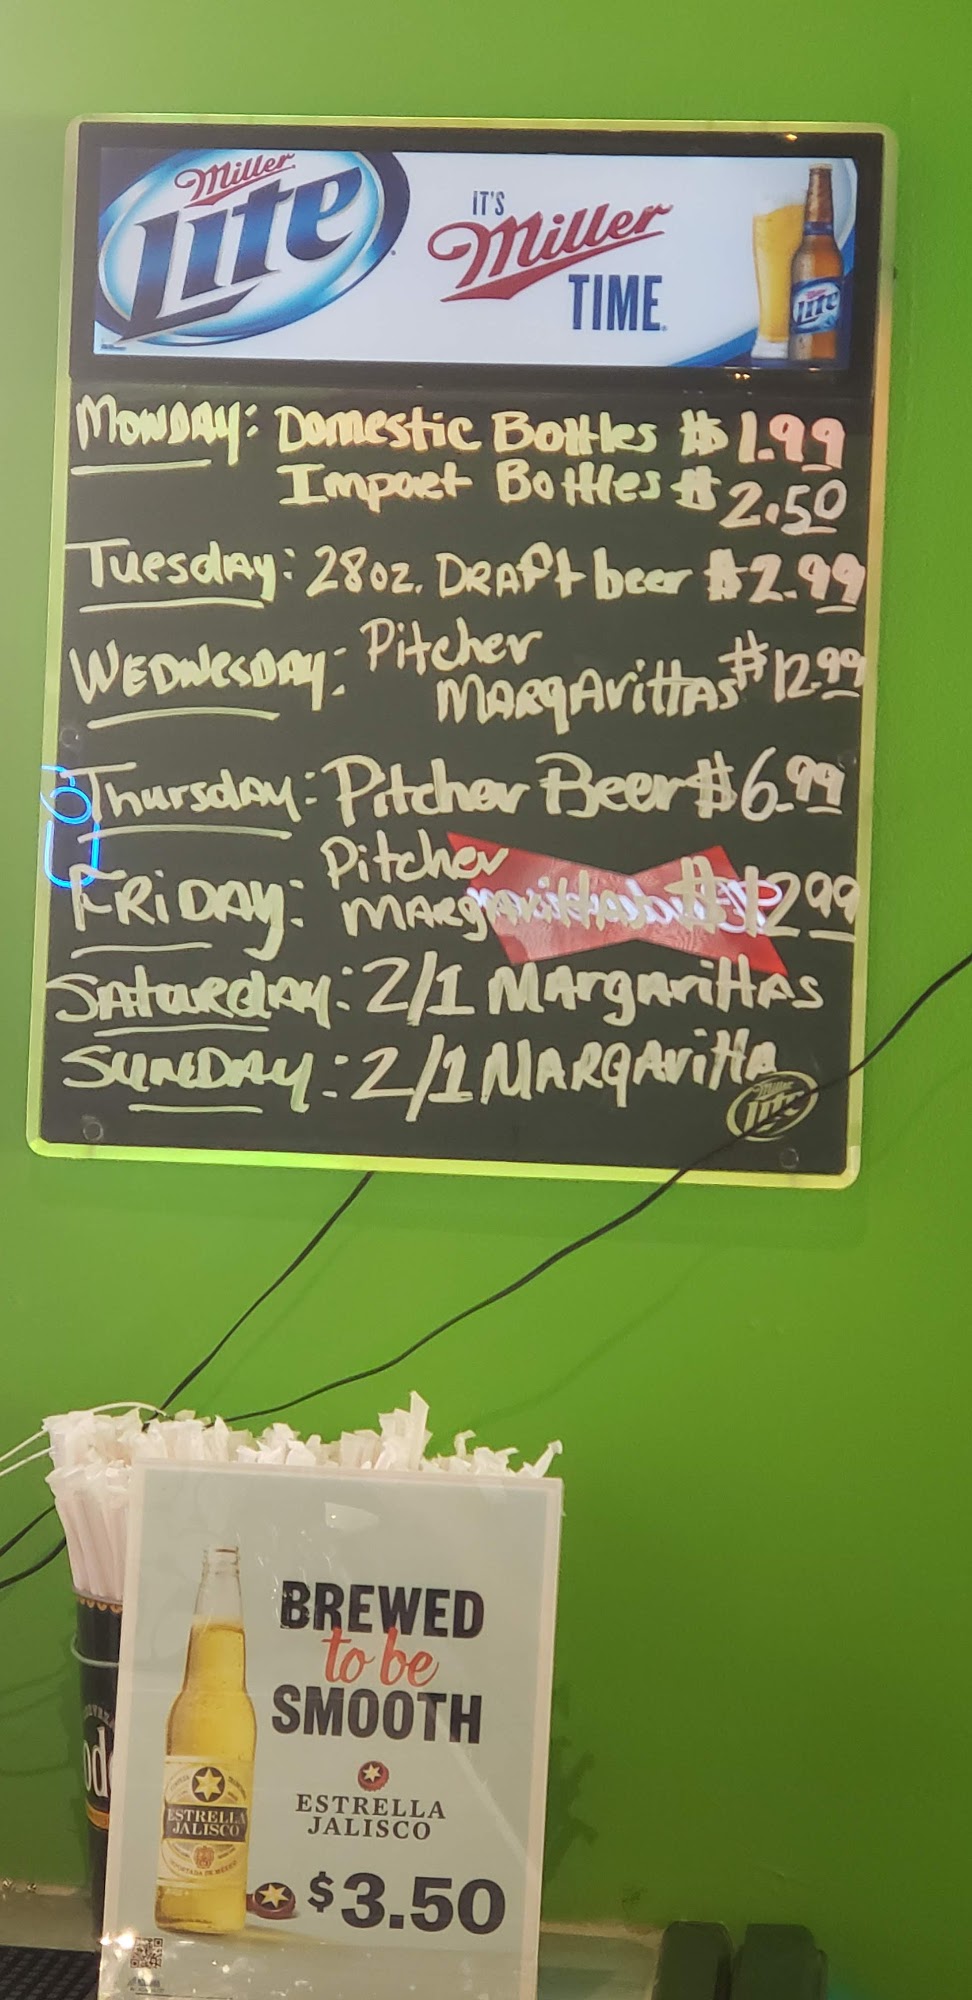 Miller
Lite
IT'S
Miller
TIME.
Lite
Monday: Domestic Bottles $1.99
Impoet Bottles $2.50
Tuesday: 28 oz. Draft beer $2.99
Wednesday: Pitcher
Margarittas $12.99
Thursday: Pitcher Beer $6.99
Friday: Pitcher
Margarittas $12.99
Saturday: 2/1 Margarittas
Sunday: 2/1 Margaritta
Miller
Lite
BREWED
to be
SMOOTH
ESTRELLA
JALISCO
ESTRELLA
JALISCO
$3.50